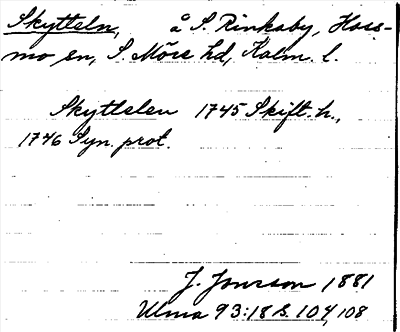 Skytteln, å S. Rinkaby, Hoss-
mo sn, S. Möre hd, Kalm. l.
Skyttelen 1745 Skift. h.,
1746 Syn. prot.
J. Jonsson 1881
Ulma 93:18 s. 104, 108